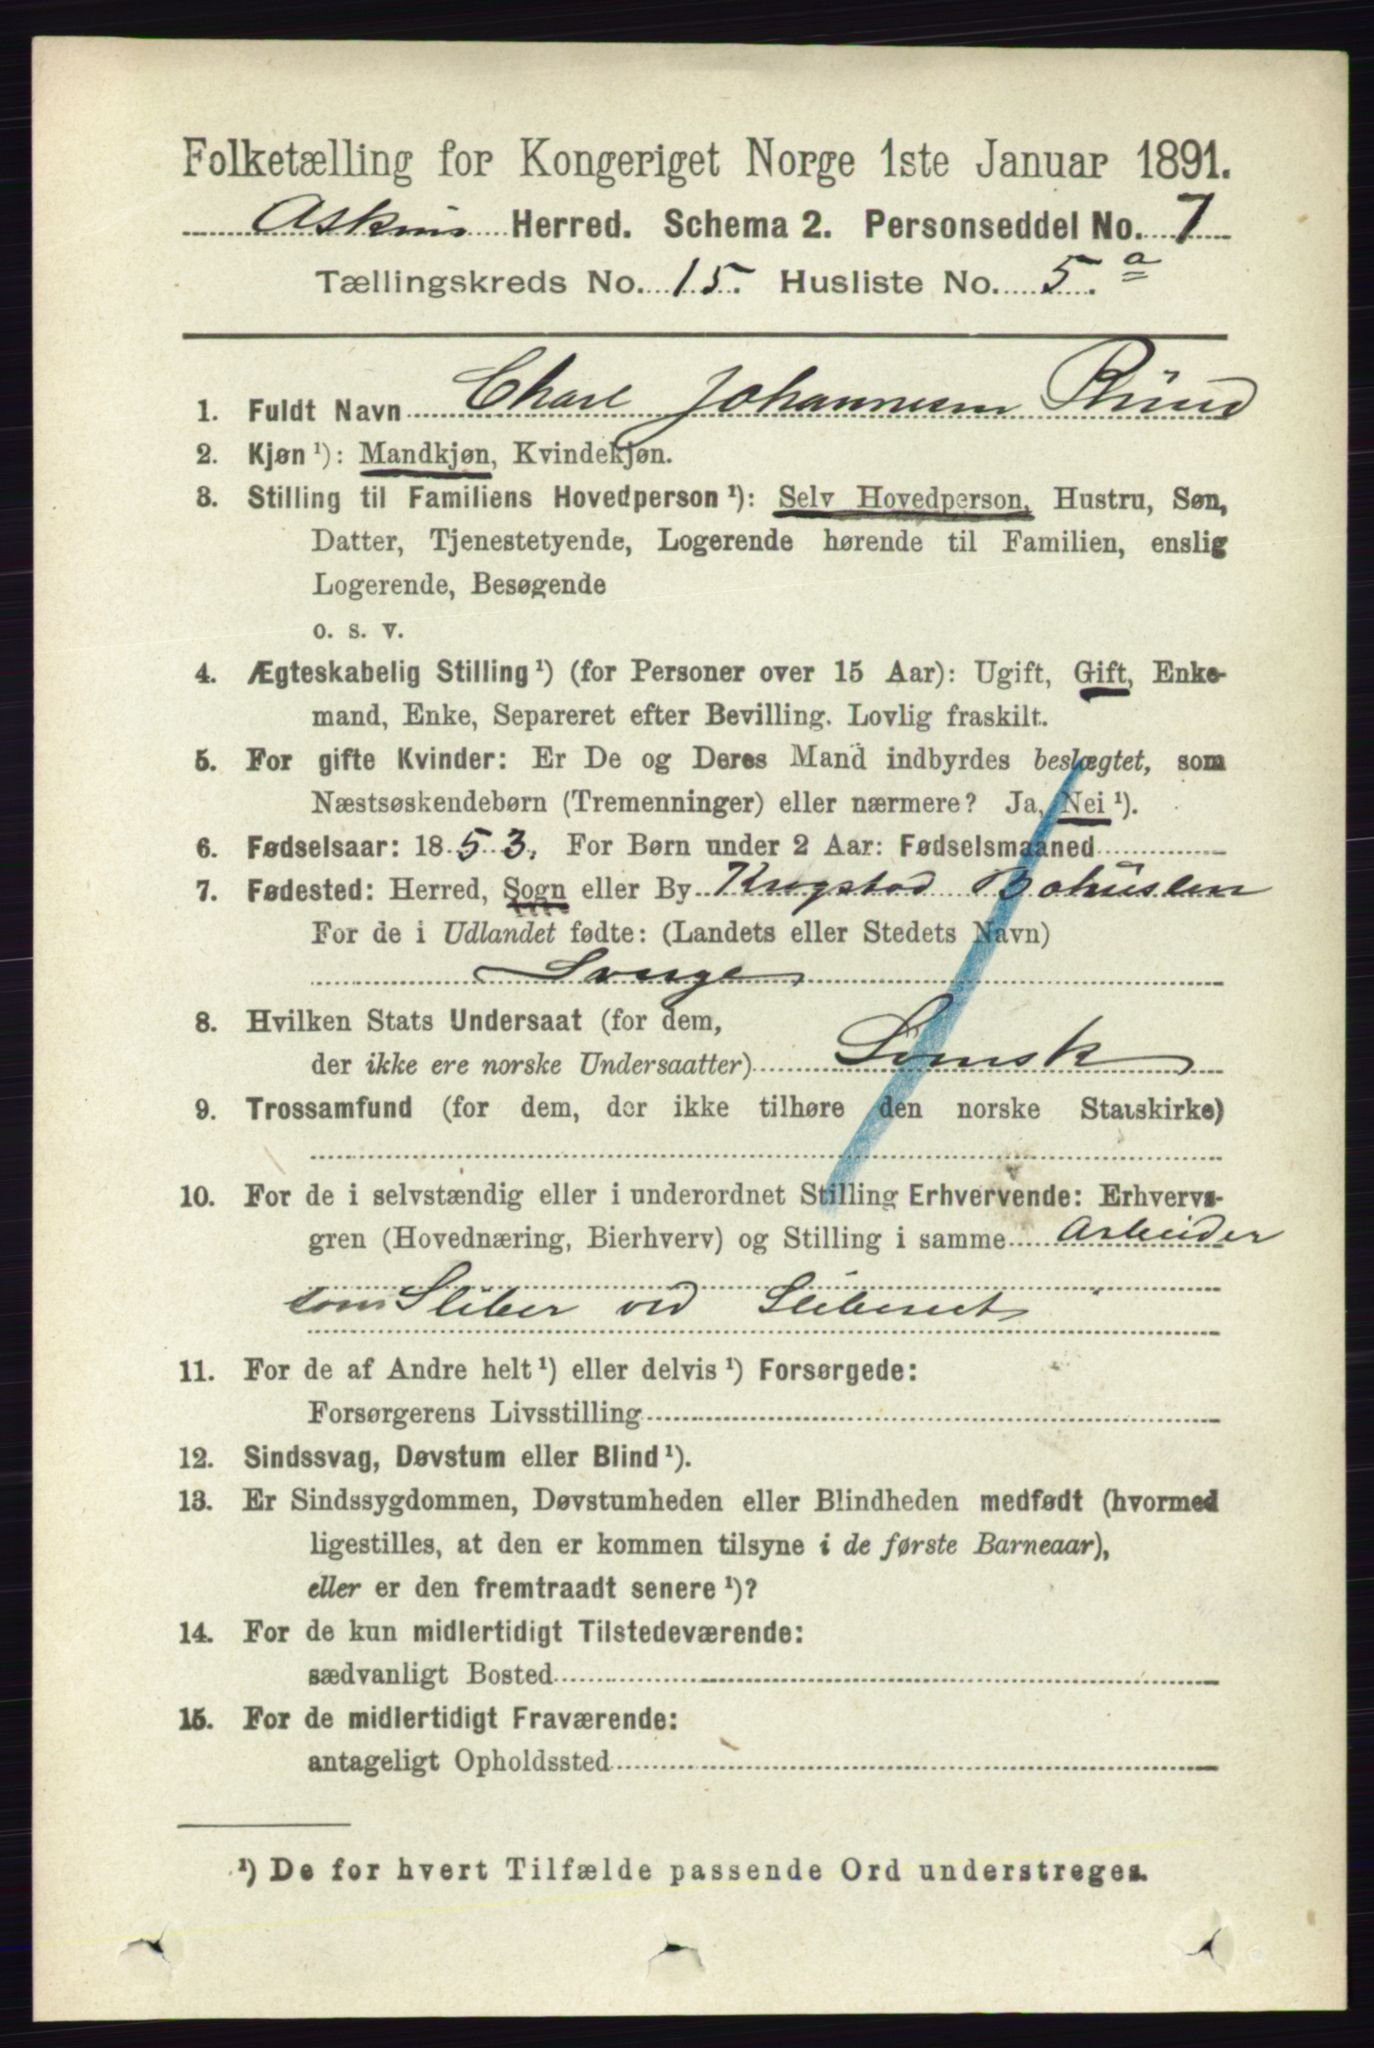 Folketælling for Kongeriget Norge 1ste Januar 1891.
Askim Herred. Schema 2. Personseddel No. 7
Tællingskreds No. 15. Husliste No. 5. a
1. Fuldt Navn Charl Johannesen
2. Kjøn ¹): Mandkjøn, Kvindekjøn.
3. Stilling til Familiens Hovedperson ¹): Selv Hovedperson, Hustru, Søn,
Datter, Tjenestetyende, Logerende hørende til Familien, enslig
Logerende, Besøgende
o. s. v.
4. Ægteskabelig Stilling ¹) (for Personer over 15 Aar): Ugift, Gift, Enke-
mand, Enke, Separeret efter Bevilling. Lovlig fraskilt.
5. For gifte Kvinder: Er De og Deres Mand indbyrdes beslægtet, som
Næstsøskendebørn (Tremenninger) eller nærmere? Ja, Nei ¹).
6. Fødselsaar: 1853. For Børn under 2 Aar: Fødselsmaaned
7. Fødested: Herred, Sogn eller By Krogstad Bohuslen
For de i Udlandet fødte: (Landets eller Stedets Navn)
Sverge
8. Hvilken Stats Undersaat (for dem,
der ikke ere norske Undersaatter) Svensk
9. Trossamfund (for dem, der ikke tilhøre den norske Statskirke)
10. For de i selvstændig eller i underordnet Stilling Erhvervende: Erhvervs-
gren (Hovednæring, Bierhverv) og Stilling i samme Arbeider
som Sliber ved Sliberiet
11. For de af Andre helt ¹) eller delvis ¹) Forsørgede:
Forsørgerens Livsstilling
12. Sindssvag, Døvstum eller Blind ¹).
13. Er Sindssygdommen, Døvstumheden eller Blindheden medfødt (hvormed
ligestilles, at den er kommen tilsyne i de første Barneaar),
eller er den fremtraadt senere ¹)?
14. For de kun midlertidigt Tilstedeværende:
sædvanligt Bosted
15. For de midlertidigt Fraværende:
antageligt Opholdssted
¹) De for hvert Tilfælde passende Ord understreges.